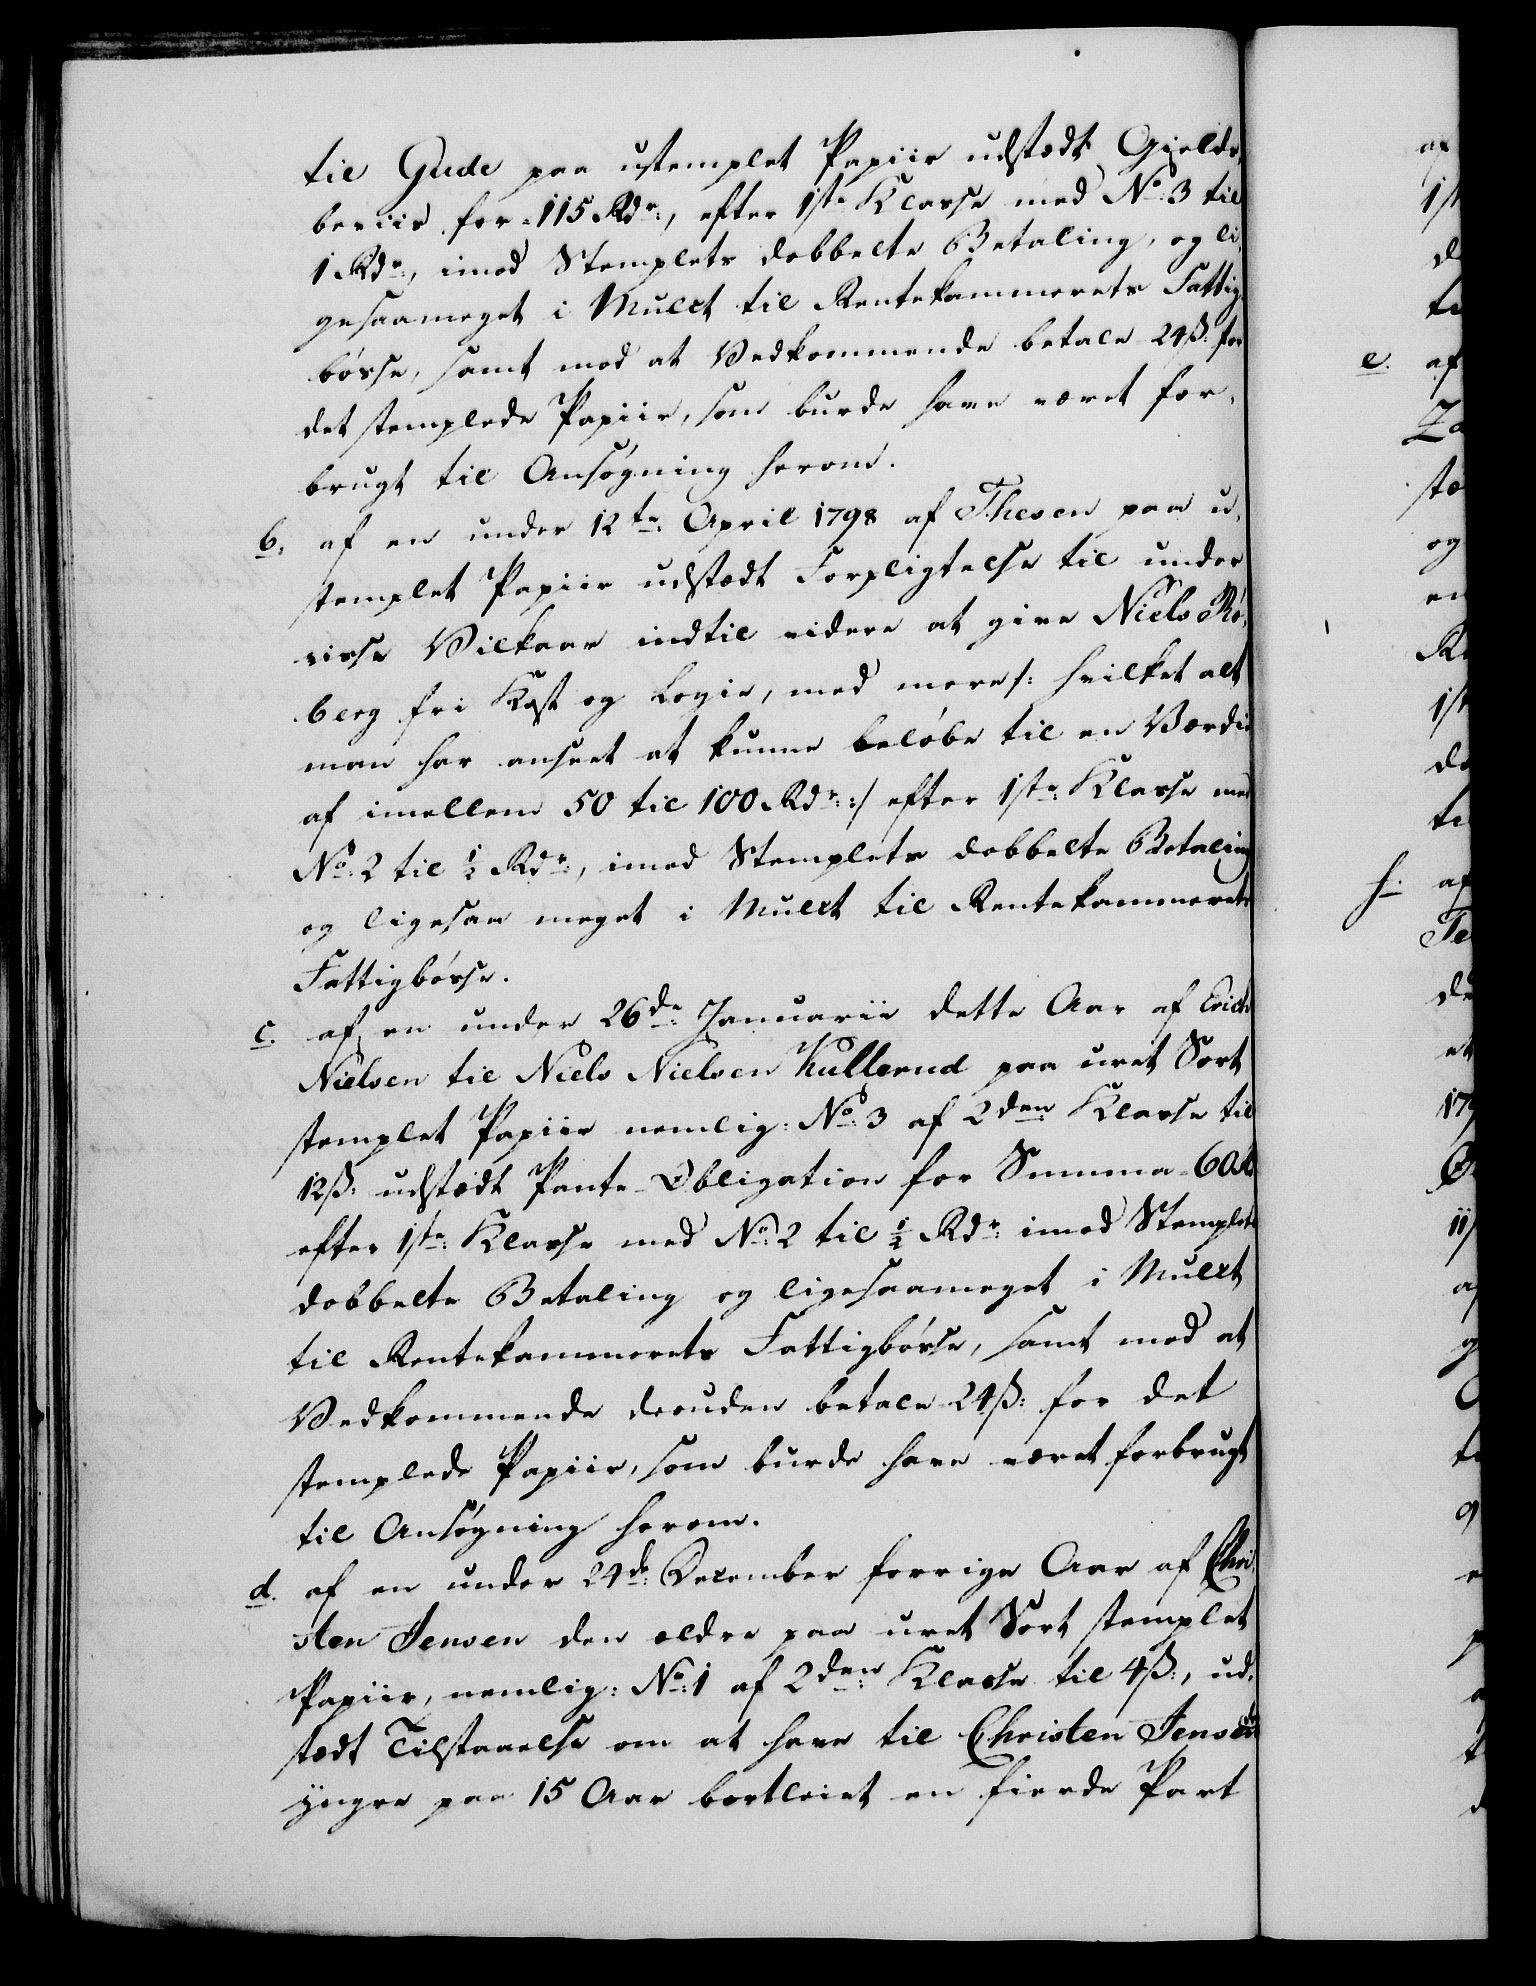 til Gude paa ustemplet Papiir udstædt Gields,
beviis for 115 Rdr:, efter 1ste Klasse med No: 3 til
1 Rdr:, imod Stemplets dobbelte Betaling, og li,
gesaameget i Mulct til Rentekammerets Fattig,
bøsse, samt mod at Vedkommende betale 24 ß: for
det stemplede Papiir, som burde have været for,
brugt til Ansøgning herom.
b. af en under 12te: April 1798 af Thesen paa u,
stemplet Papiir udstædt Forpligtelse til under
visse Vilkaar indtil videre at give Niels Rø,
berg fri Kost og Logie, med mere /: hvilket alt
man har anseet at kunne beløbe til en Værdie
af imellem 50 til 100 Rdr: :/ efter 1ste: Klasse med
No: 2 til ½ Rdr:, imod Stemplets dobbelte Betaling
og ligesaa meget i Mulct til Rentekammerets
Fattigbøsse.
c. af en under 26de: Januarii dette Aar af Erich
Nielsen til Niels Nielsen Kullerud paa uret Sort
stemplet Papiir nemlig: No: 3 af 2den Klasse til
12 ß: udstædt Pante-Obligation for Summa 60 Rd
efter 1ste: Klasse med No: 2 til ½ Rdr: imod Stemplets
dobbelte Betaling og ligesaameget i Mulct
til Rentekammerets Fattigbøsse, samt mod at
Vedkommende desuden betale 24 ß: for det
stemplede Papiir, som burde have været forbrugt
til Ansøgning herom.
d. af en under 24de: December forrige Aar af Chri,
sten Jensen den ældre paa uret Sort stemplet
Papiir, nemlig: No: 1 af 2den: Klasse til 4 ß:, ud,
stædt Tilstaaelse om at have til Christen Jensen
yngre paa 15 Aar bortleiet en fierde Part